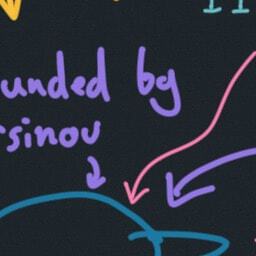 unded by
rsinov